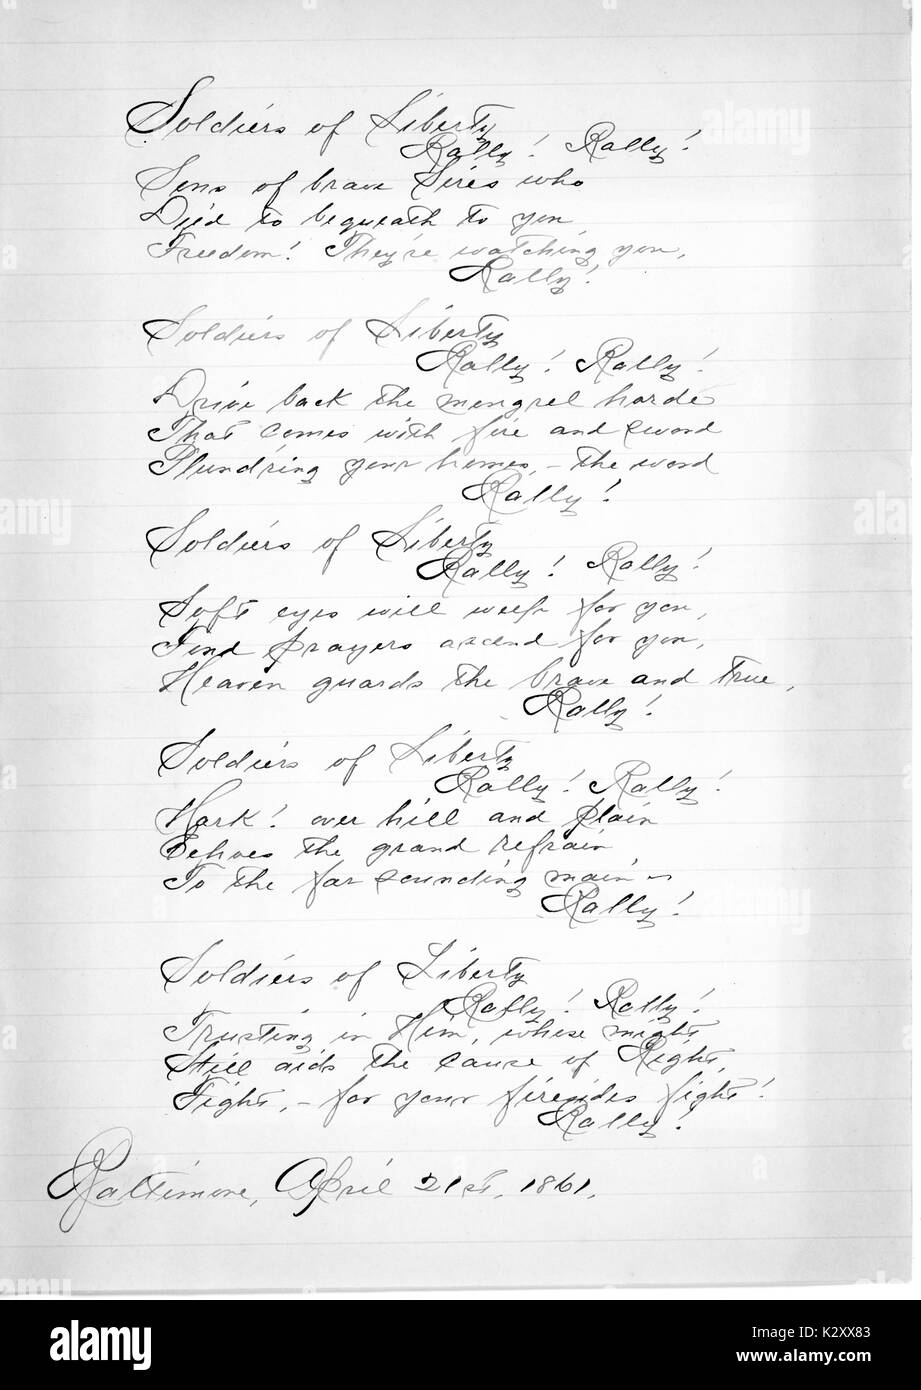 Soldiers of Liberty
Rally! Rally!
Sons of brave Sires who
Died to bequeath to you
Freedom! They're watching you,
Rally!
Soldiers of Liberty
Rally! Rally!
Drive back the mongrel horde
That comes with fire and sword
Plund'ring your homes, – the word
Rally!
Soldiers of Liberty
Rally! Rally!
Soft eyes will weep for you,
Fond prayers ascend for you,
Heaven guards the brave and true,
Rally!
Soldiers of Liberty
Rally! Rally!
Hark! over hill and plain
Echoes the grand refrain
To the far sounding main –
Rally!
Soldiers of Liberty
Rally! Rally!
Trusting in Him, whose might
Still aids the cause of Right,
Fight, – for your firesides fight!
Rally!
Baltimore, April 21st, 1861.
alamy
alamy
alamy
alamy
alamy
Image ID: K2XX83
www.alamy.com